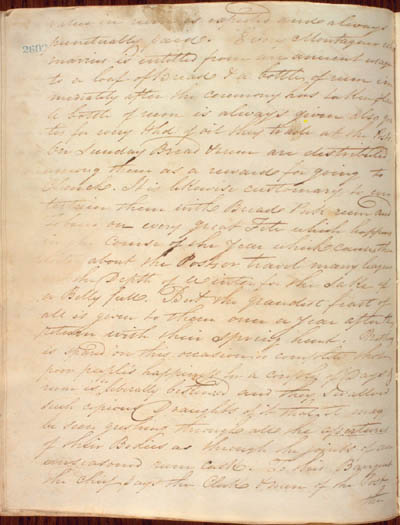 value in rum is expected and always
2602
punctually paid. Every Montagnais who
marries is entitled from an ancient usage
to a loaf of Bread & a bottle of rum im
mediately after the ceremony has taken place
a bottle of rum is always given also
for every Hhd of oil they trade at the Posts
On Sunday Bread & rum are distributed
among them as a reward for going to
Church. It is likewise customary to en
tertain them with Bread Pork rum and
on every great Fete which happens
in the course of the Year which causes them
about the Posts or travel many leagues
in the Depth of Winter for the sake of
a Belly full. But the grandest feast of
all is given to them once a Year after they
return with their Spring hunt. Nothing
is spared on this occasion to complete these
poor people's happiness for a couple of Days
rum is liberally bestowed and they swallow
such copious Draughts of it that it may
be seen gushing through all the apertures
of their Bodies as through the joints of an
unseasoned rum cask. To this Banquet
the Chief says the Clerk & men of the Post
the